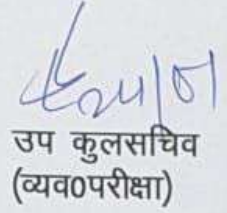 उप कुलसचिव
(व्यव०परीक्षा)